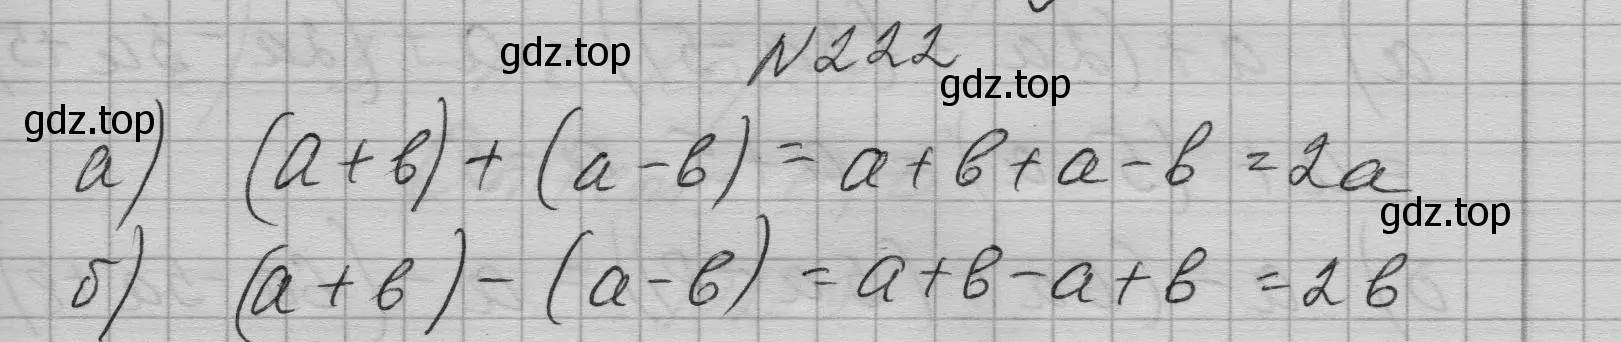 N222
gdz.top
gdz.top
gdz.top
а) (a+b)+(a-b) = a+b+a-b = 2a
gdz.top
б) (a+b)-(a-b) = a+b-a+b = 2b